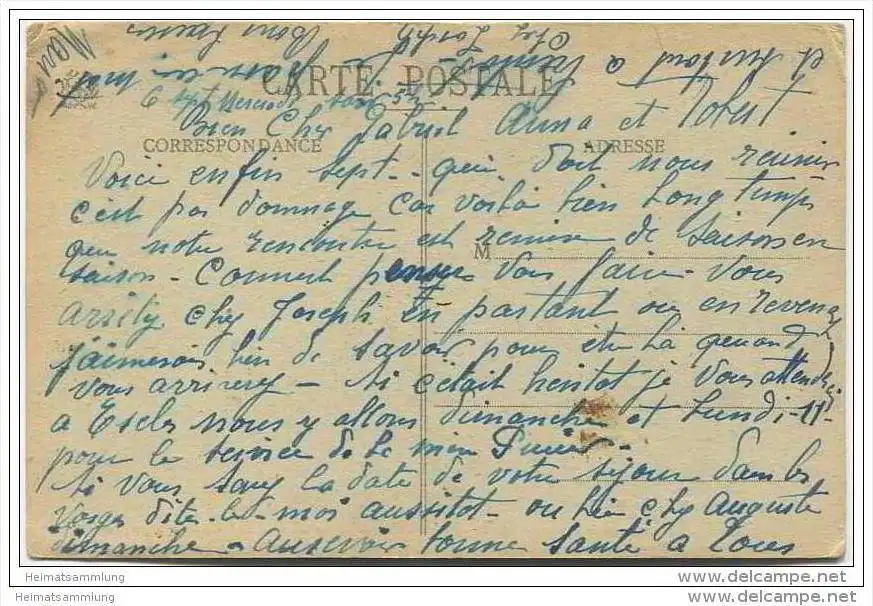 et surtout a
Chez Joseph
Bons baisers
CARTE POSTALE
6 sept Mercredi soir 5h
Bien Cher Gabriel Anna et
CORRESPONDANCE
ADRESSE
Voici enfin sept - qui doit nous réunir
c'est pas dommage car voilà bien longtemps
que notre rencontre est remise de saison en
M
saison - Comment pensez vous faire - Vous
arrêtez chez Joseph. En partant ou en revenant
j'aimerais bien de savoir pour être là quand
vous arriverez - si c'était bientot je vous attendrai
a Escles nous y allons dimanche et lundi - 11 -
pour le service de le
si vous savez la date de votre séjour dans les
Vosges dites-le-moi aussitot - ou bien chez Auguste
dimanche - Au revoir bonne santé a tous
Heimatsammlung
www.delcampe.net
Heimatsammlung
www.delcampe.net